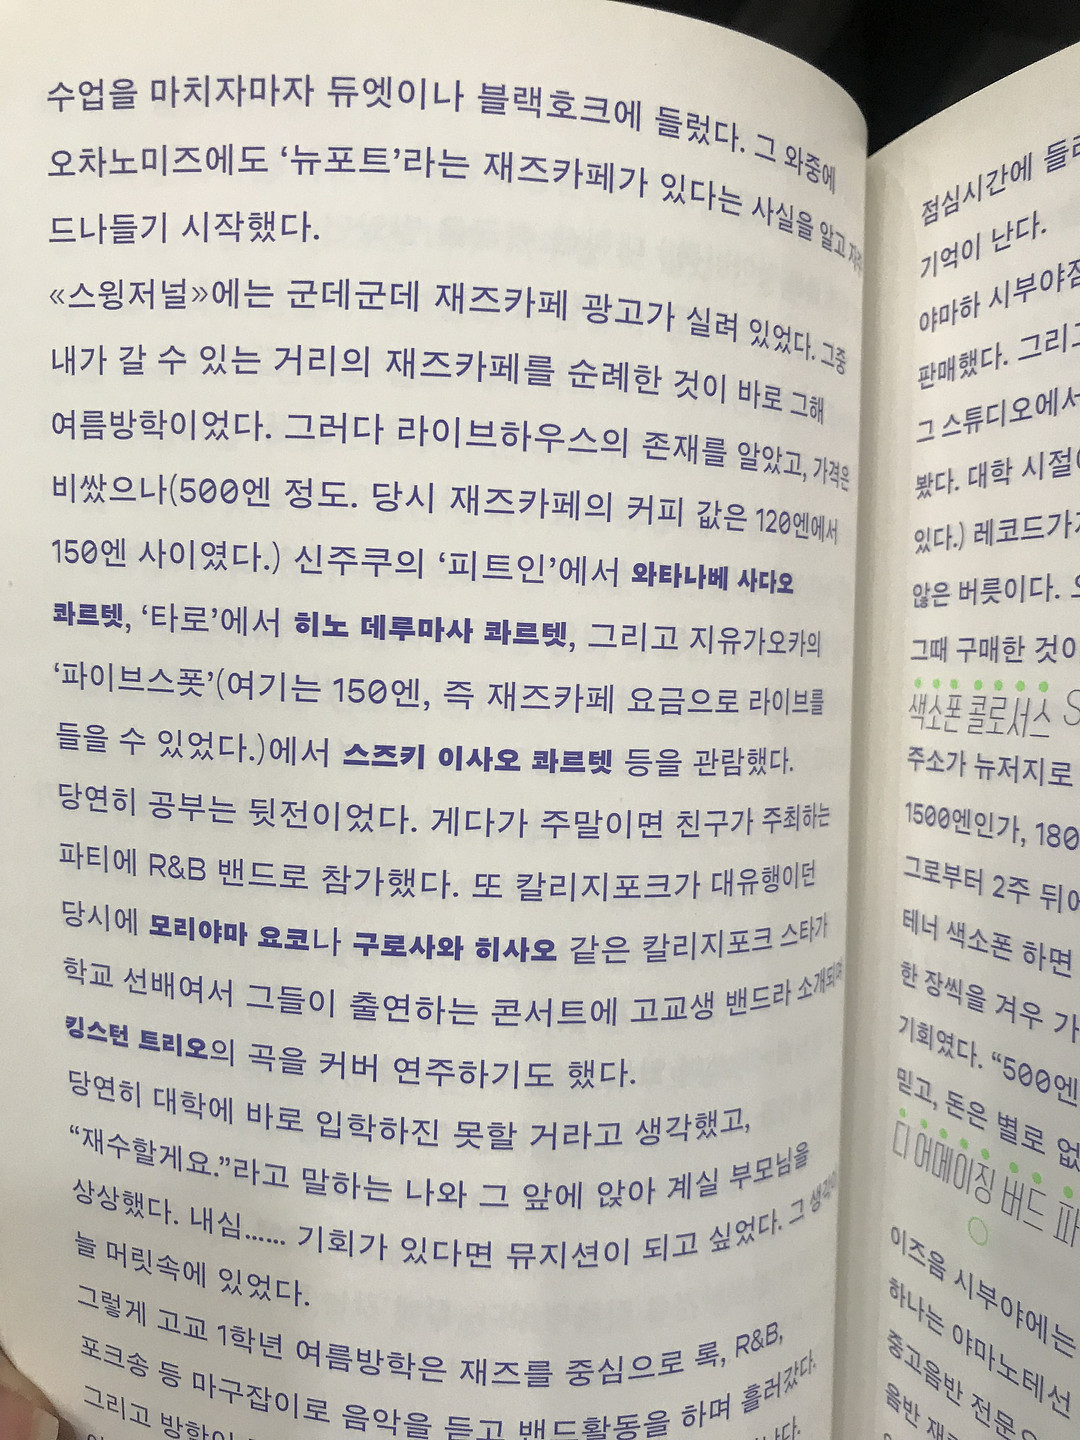 수업을 마치자마자 듀엣이나 블랙호크에 들렀다. 그 와중에
오차노미즈에도 ‘뉴포트’라는 재즈카페가 있다는 사실을 알고 자주
드나들기 시작했다.
«스윙저널»에는 군데군데 재즈카페 광고가 실려 있었다. 그중
내가 갈 수 있는 거리의 재즈카페를 순례한 것이 바로 그해
여름방학이었다. 그러다 라이브하우스의 존재를 알았고, 가격은
비쌌으나(500엔 정도. 당시 재즈카페의 커피 값은 120엔에서
150엔 사이였다.) 신주쿠의 ‘피트인’에서 와타나베 사다오
콰르텟, ‘타로’에서 히노 데루마사 콰르텟, 그리고 지유가오카의
‘파이브스폿’(여기는 150엔, 즉 재즈카페 요금으로 라이브를
들을 수 있었다.)에서 스즈키 이사오 콰르텟 등을 관람했다.
당연히 공부는 뒷전이었다. 게다가 주말이면 친구가 주최하는
파티에 R&B 밴드로 참가했다. 또 칼리지포크가 대유행이던
당시에 모리야마 요코나 구로사와 히사오 같은 칼리지포크 스타가
학교 선배여서 그들이 출연하는 콘서트에 고교생 밴드라 소개되며
킹스턴 트리오의 곡을 커버 연주하기도 했다.
당연히 대학에 바로 입학하진 못할 거라고 생각했고,
“재수할게요.”라고 말하는 나와 그 앞에 앉아 계실 부모님을
상상했다. 내심...... 기회가 있다면 뮤지션이 되고 싶었다. 그 생각이
늘 머릿속에 있었다.
그렇게 고교 1학년 여름방학은 재즈를 중심으로 록, R&B,
포크송 등 마구잡이로 음악을 듣고 밴드활동을 하며 흘러갔다.
그리고 방학이
점심시간에
기억이 난다.
야마하 시부야점
판매했다. 그리고
그 스튜디오에서
봤다. 대학 시절
있다.) 레코드가
않은 버릇이다.
그때 구매한 것이
색소폰 콜로서스 S
주소가 뉴저지로
1500엔인가, 180
그로부터 2주 뒤에
테너 색소폰 하면
한 장씩을 겨우
기회였다. “500엔
믿고, 돈은 별로
디 어메이징 버드
이즈음 시부야에는
하나는 야마노테선
중고음반 전문
음반